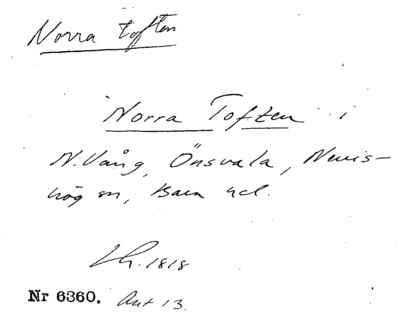 Norra toften
Norra Toften i
N. Vång, Önsvala, Nevis-
hög sn, Bara hd.
Lh. 1818
Nr 6360. Akt 13.